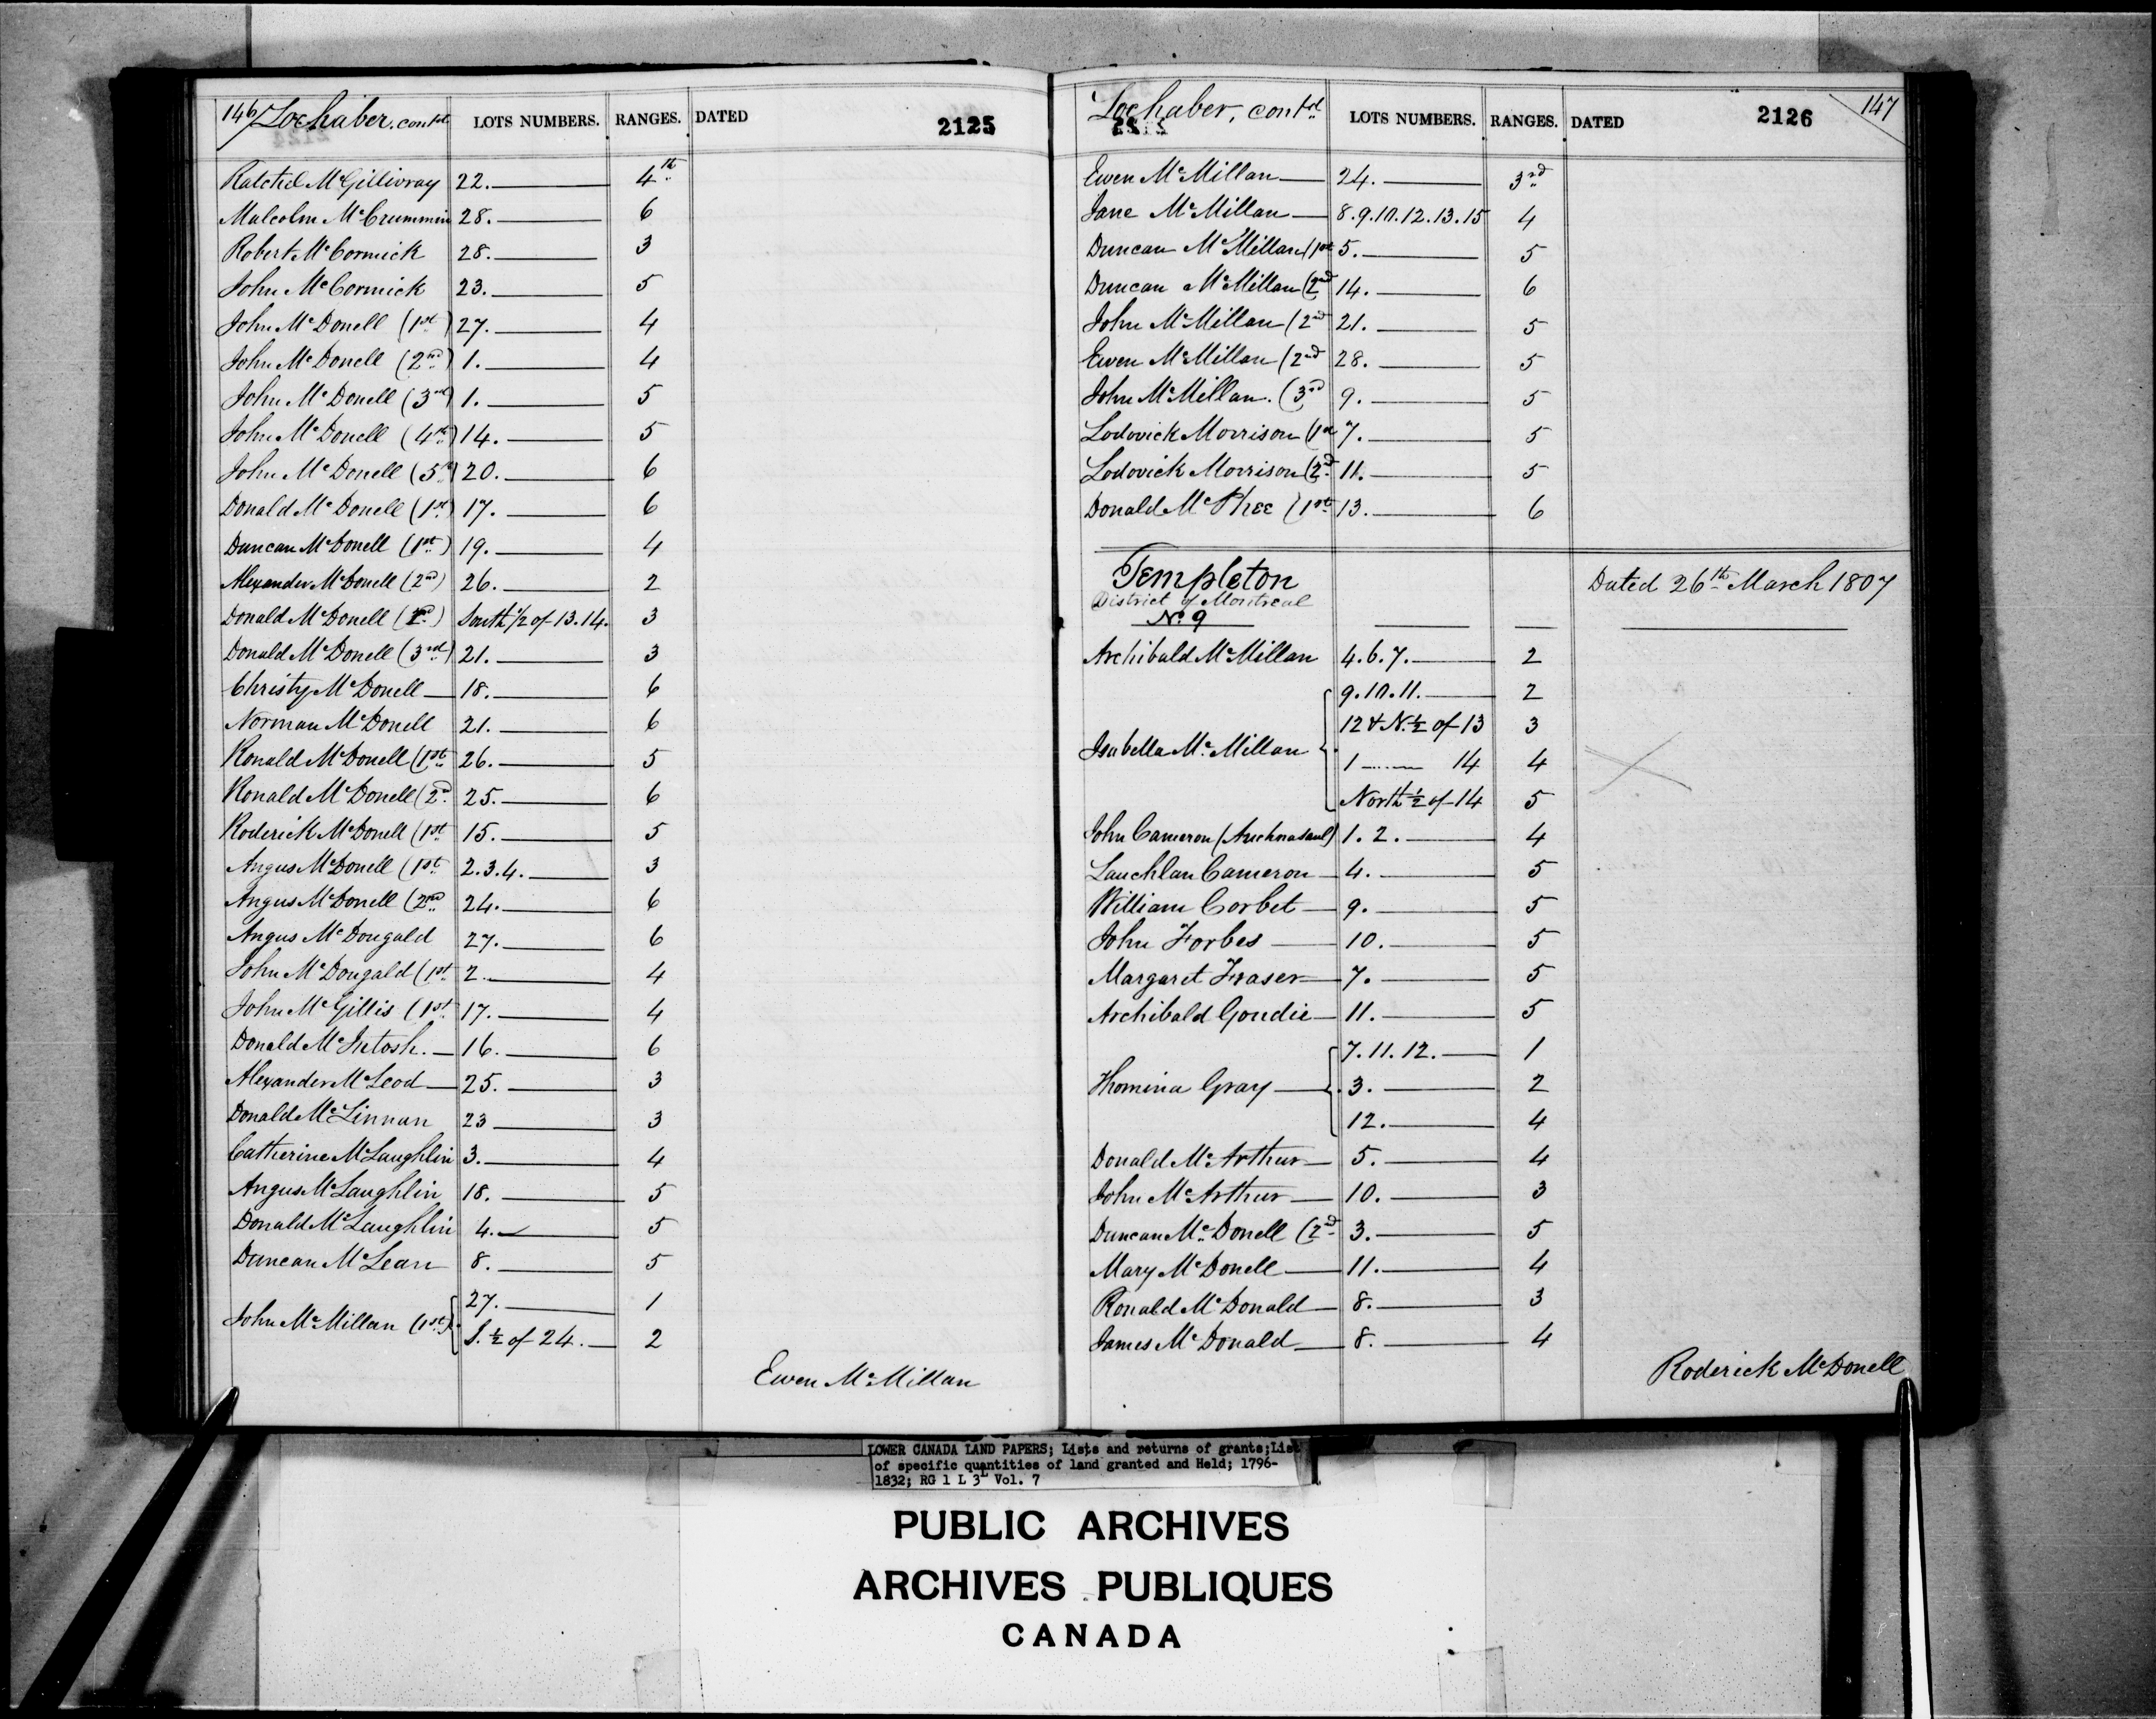 146 Lochaber, contd. LOTS NUMBERS. RANGES. DATED 2125
McGillivray 22. 4th
Malcolm McCrummin 28. 6
Robert McCormick 28. 3
John McCormick 23. 5
John McDonell (1st) 27. 4
John McDonell (2nd) 1. 4
John McDonell (3rd) 1. 5
John McDonell (4th) 14. 5
John McDonell (5th) 20. 6
Donald McDonell (1st) 17. 6
Duncan McDonell (1st) 19. 4
Alexander McDonell (2nd) 26. 2
Donald McDonell South 1/2 of 13.14. 3
Donald McDonell (3rd) 21. 3
Christy McDonell 18. 6
Norman McDonell 21. 6
Ronald McDonell (1st 26. 5
Ronald McDonell (2d 25. 6
Roderick McDonell (1st 15. 5
Angus McDonell (1st 2.3.4. 3
Angus McDonell (2nd 24. 6
Angus McDougald 27. 6
John McDougald (1st 2. 4
John McGillis (1st 17. 4
Donald McIntosh. 16. 6
Alexander McLeod 25. 3
Donald McLinnan 23 3
Catherine McLaughlin 3. 4
Angus McLaughlin 18. 5
Donald McLaughlin 4. 5
Duncan McLean 8. 5
John McMillan (1st) 27. 1
S. 1/2 of 24. 2
Ewen McMillan
Lochaber, contd. LOTS NUMBERS. RANGES. DATED 2126 147
Ewen McMillan 24. 3rd
Jane McMillan 8.9.10.12.13.15 4
Duncan McMillan (1st 5. 5
Duncan McMillan (2nd 14. 6
John McMillan (2nd 21. 5
Ewen McMillan (2nd 28. 5
John McMillan. (3rd 9. 5
Lodovick Morrison (1st 7. 5
Lodovick Morrison (2nd 11. 5
Donald McPhee (1st 13. 6
Templeton Dated 26th March 1807
District of Montreal
No. 9
Archibald McMillan 4.6.7. 2
9.10.11. 2
12 & N. 1/2 of 13 3
Isabella McMillan 1 14 4
North 1/2 of 14 5
John Cameron 1.2. 4
Lauchlan Cameron 4. 5
William Corbet 9. 5
John Forbes 10. 5
Margaret Fraser 7. 5
Archibald Goudie 11. 5
7.11.12. 1
Thomina Gray 3. 2
12. 4
Donald McArthur 5. 4
John McArthur 10. 3
Duncan McDonell (2nd 3. 5
Mary McDonell 11. 4
Ronald McDonald 8. 3
James McDonald 8. 4
Roderick McDonell
LOWER CANADA LAND PAPERS; Lists and returns of grants; List
of specific quantities of land granted and Held; 1796-
1832; RG 1 L 3L Vol. 7
PUBLIC ARCHIVES
ARCHIVES PUBLIQUES
CANADA